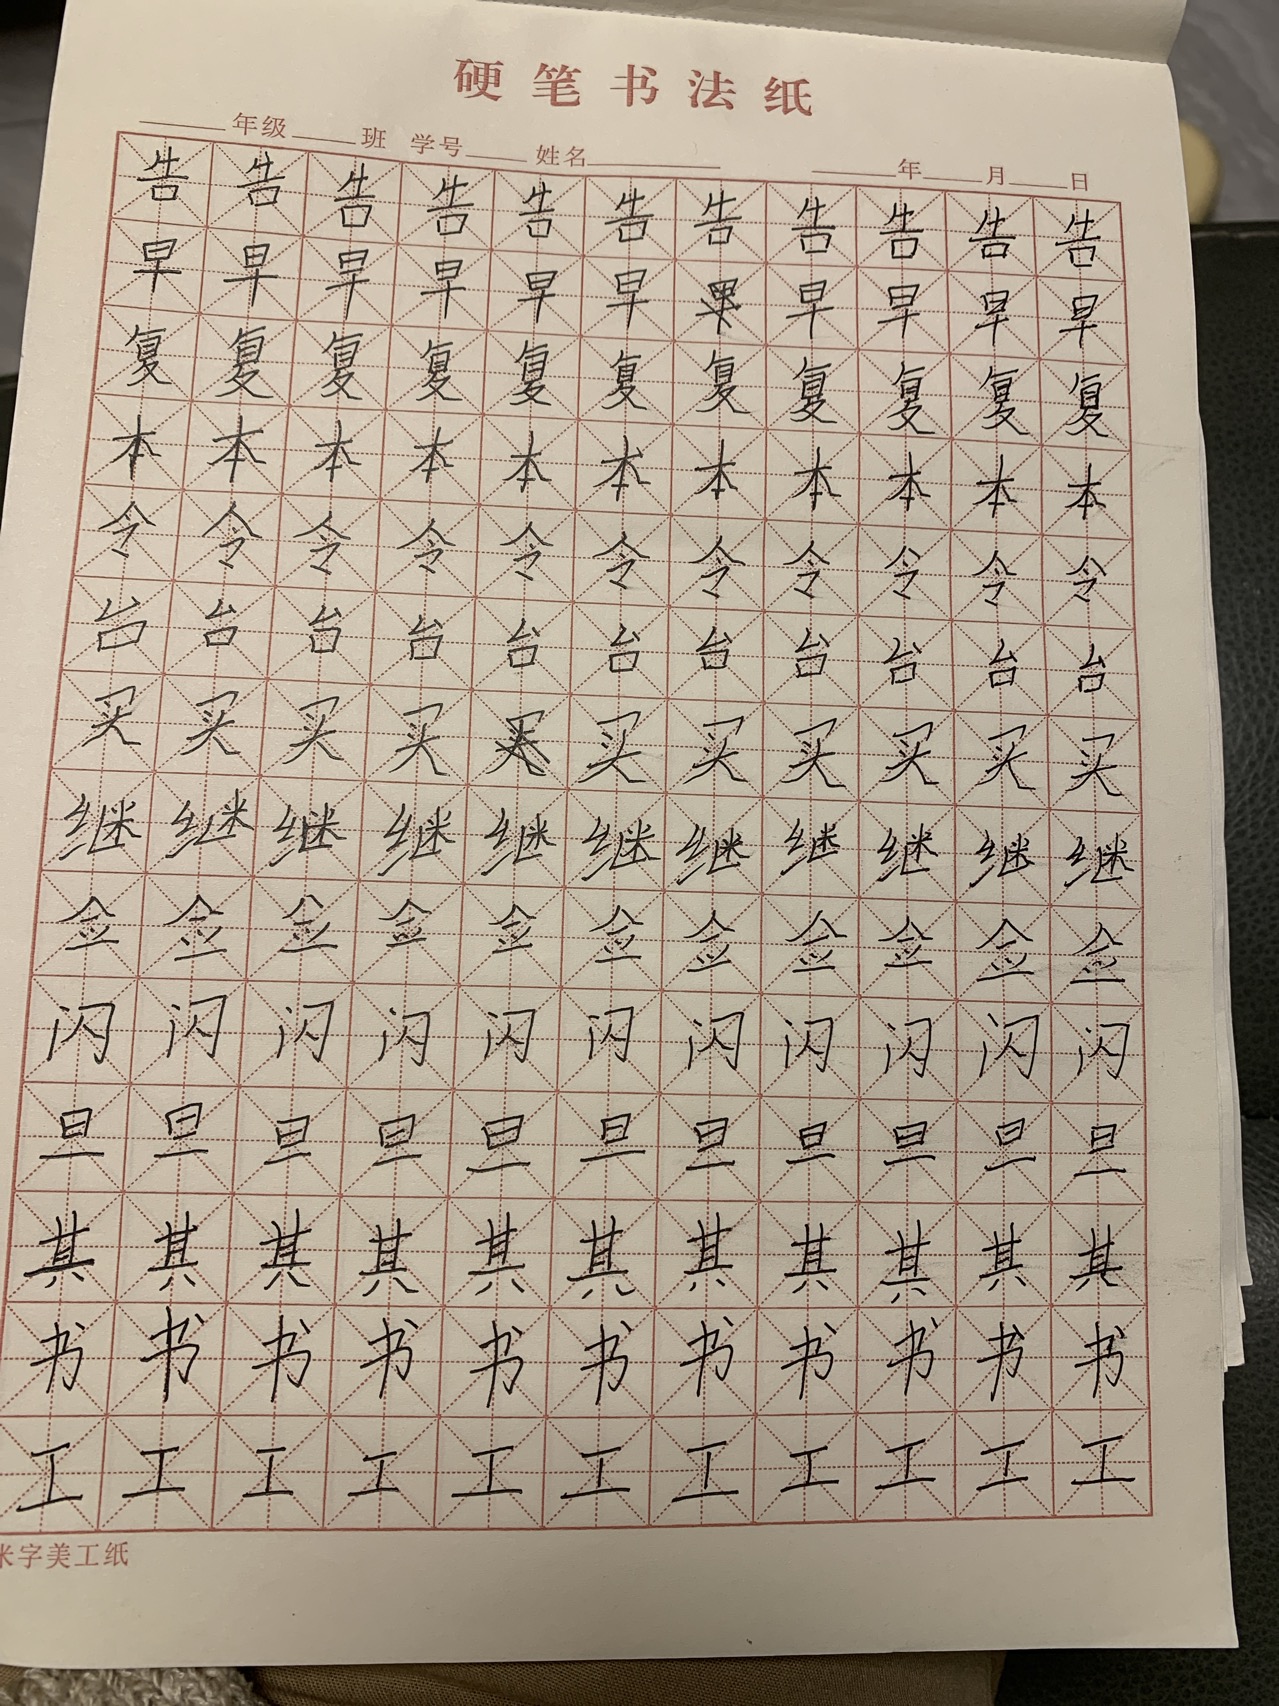 硬笔书法纸
年级 班 学号 姓名 年 月 日
告告告告告告告告告告告
早早早早早早早早早早
复复复复复复复复复复复
本本本本本本本本本本本
令令令令令令令令令令令
台台台台台台台台台台台
买买买买买买买买买买
继继继继继继继继继继继
佥佥佥佥佥佥佥佥佥佥佥
闪闪闪闪闪闪闪闪闪闪闪
旦旦旦旦旦旦旦旦旦旦旦
其其其其其其其其其其其
书书书书书书书书书书书
工工工工工工工工工工工
米字美工纸